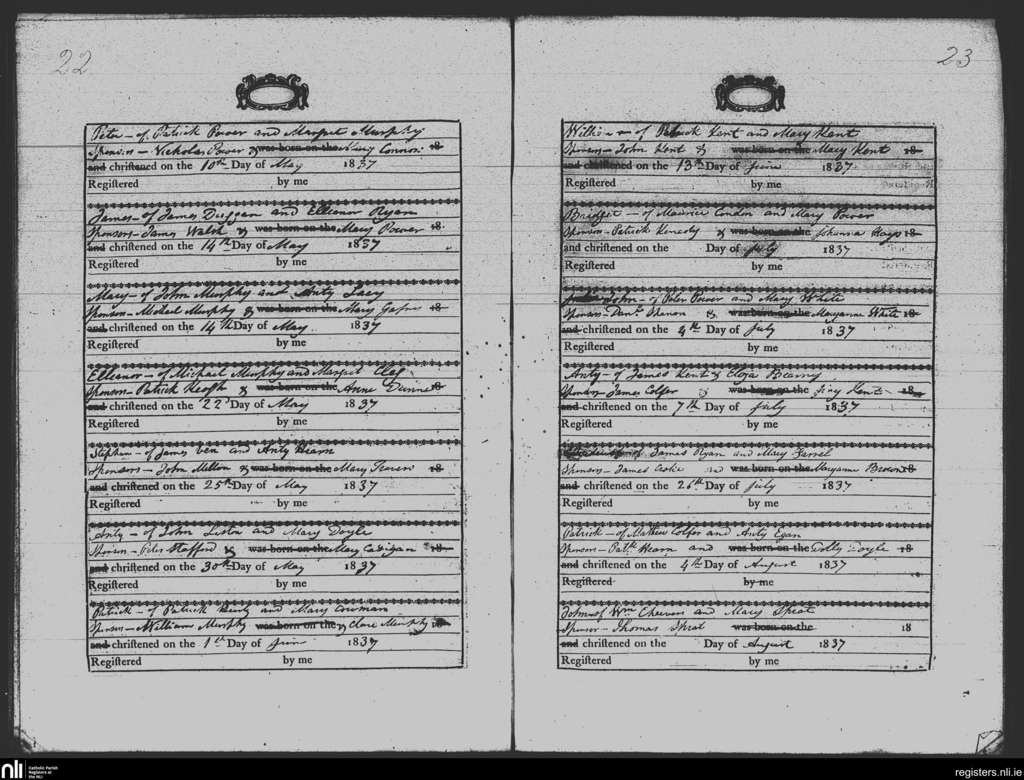 22
Peter - of Patrick Power and Margret Murphy
Sponsors - Nicholas Power & was born on the Mary Connor 18
and christened on the 10th Day of May 1837
Registered by me
James - of James Duggan and Elleonor Ryan
Sponsors - James Walsh & was born on the Mary Power 18
and christened on the 14th Day of May 1837
Registered by me
Mary - of John Murphy and Anty
Sponsors - Michael Murphy & was born on the Mary 18
and christened on the 14th Day of May 1837
Registered by me
Elleonor - of Michael Murphy and Margret
Sponsors - Patrick Keogh & was born on the Anne 18
and christened on the 22d Day of May 1837
Registered by me
Stephen - of James and Anty Hearn
Sponsors - John & was born on the Mary 18
and christened on the 25th Day of May 1837
Registered by me
Anty - of John and Mary Doyle
Sponsors - Peter Stafford & was born on the Mary 18
and christened on the 30th Day of May 1837
Registered by me
Patrick - of Patrick and Mary
Sponsors - William Murphy was born on the & Clare Murphy 18
and christened on the 1st Day of June 1837
Registered by me
23
William - of Patrick Kent and Mary Kent
Sponsors - John Kent & was born on the Mary Kent 18
and christened on the 13th Day of June 1837
Registered by me
Bridget - of Maurice Condon and Mary Power
Sponsors - Patrick Kenedy & was born on the Johanna Hays 18
and christened on the Day of July 1837
Registered by me
John - of Peter Power and Mary White
Sponsors - was born on the Maryanne White 18
and christened on the 4th Day of July 1837
Registered by me
Anty - of James Kent &
Sponsors - James Colfer & was born on the Kent 18
and christened on the 7th Day of July 1837
Registered by me
of James Ryan and Mary
Sponsors - James Cooke and was born on the Maryanne Brown 18
and christened on the 26th Day of July 1837
Registered by me
Patrick - of Mathew Colfer and Anty Egan
Sponsors - Patk Hearn and was born on the Doyle 18
and christened on the 4th Day of August 1837
Registered by me
John of Wm Cheevers and Mary Sprat
Sponsor - Thomas Sprat was born on the 18
and christened on the Day of August 1837
Registered by me
nli Catholic Parish Registers at the NLI
registers.nli.ie